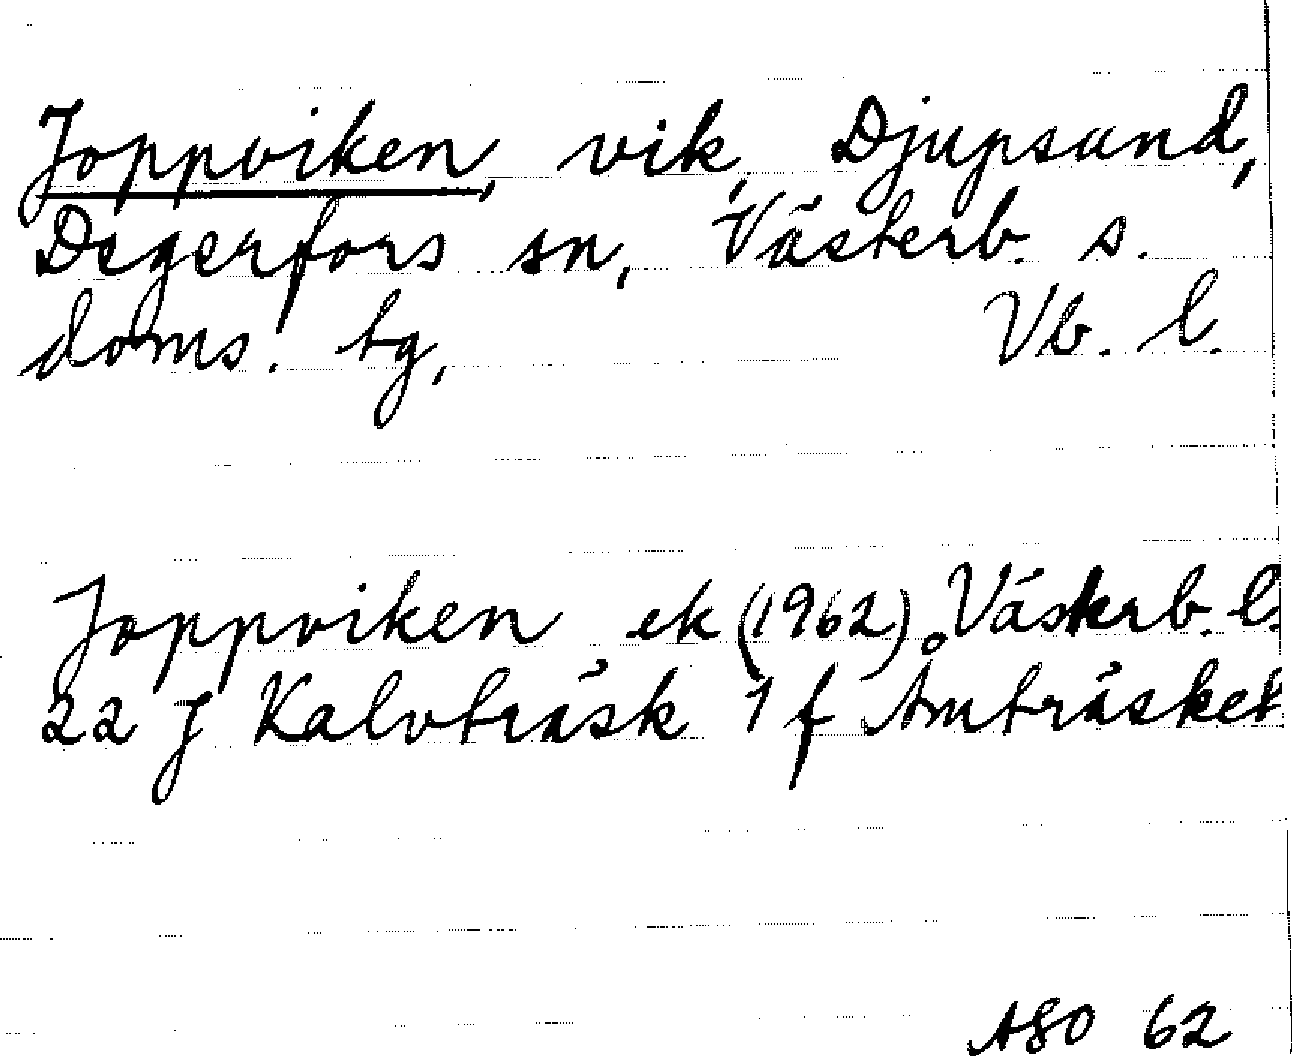 Joppviken, vik, Djupsund,
Degerfors sn, Västerb. s.
doms. tg, Vb. l.
Joppviken ek (1962) Västerb. l.
22 J Kalvträsk 1 f Åmträsket
ASO 62